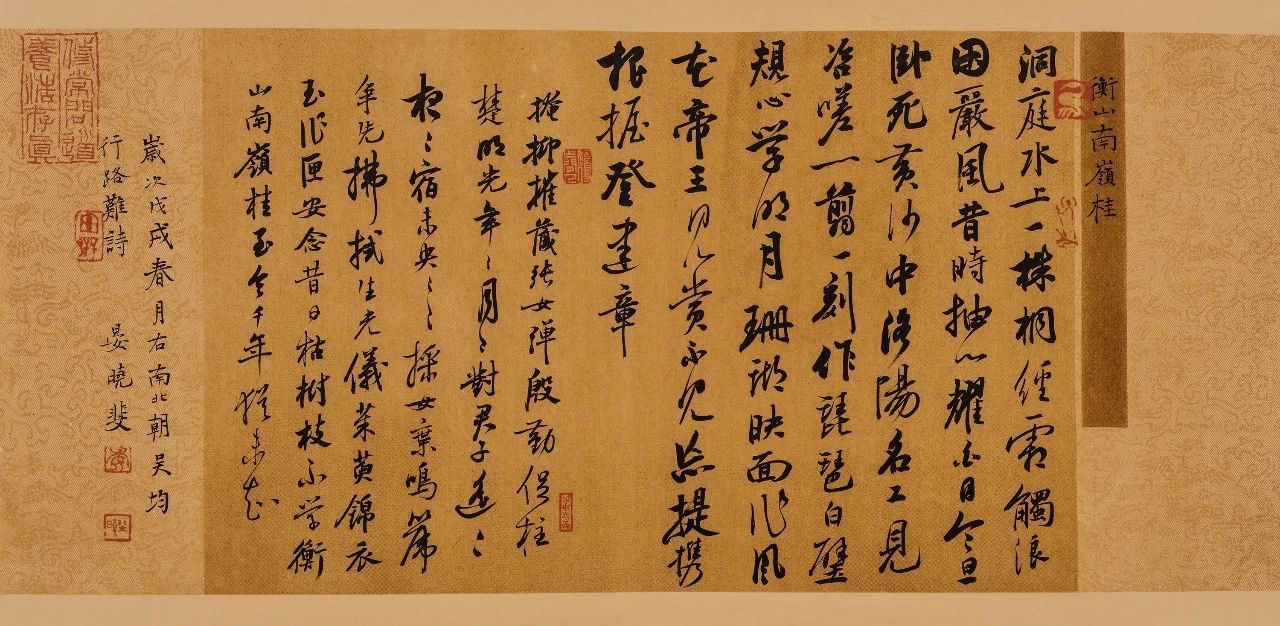 衡山南嶺桂
洞庭水上一株桐經霜觸浪
困嚴風昔時抽心耀白日今旦
卧死黃沙中洛陽名工見
咨嗟一翦一刻作琵琶白璧
規心學明月珊瑚映面作風
花帝王見賞不見忘提攜
把握登建章
掩抑摧藏張女彈殷勤促柱
楚明光年〻月〻對君子遙〻
夜〻宿未央〻〻採女棄鳴篪
爭先拂拭生光儀茱萸錦衣
玉作匣安念昔日枯樹枝不學衡
山南嶺桂至今千年猶未知
歲次戊戌春月右南北朝吳均
行路難詩 晏曉斐